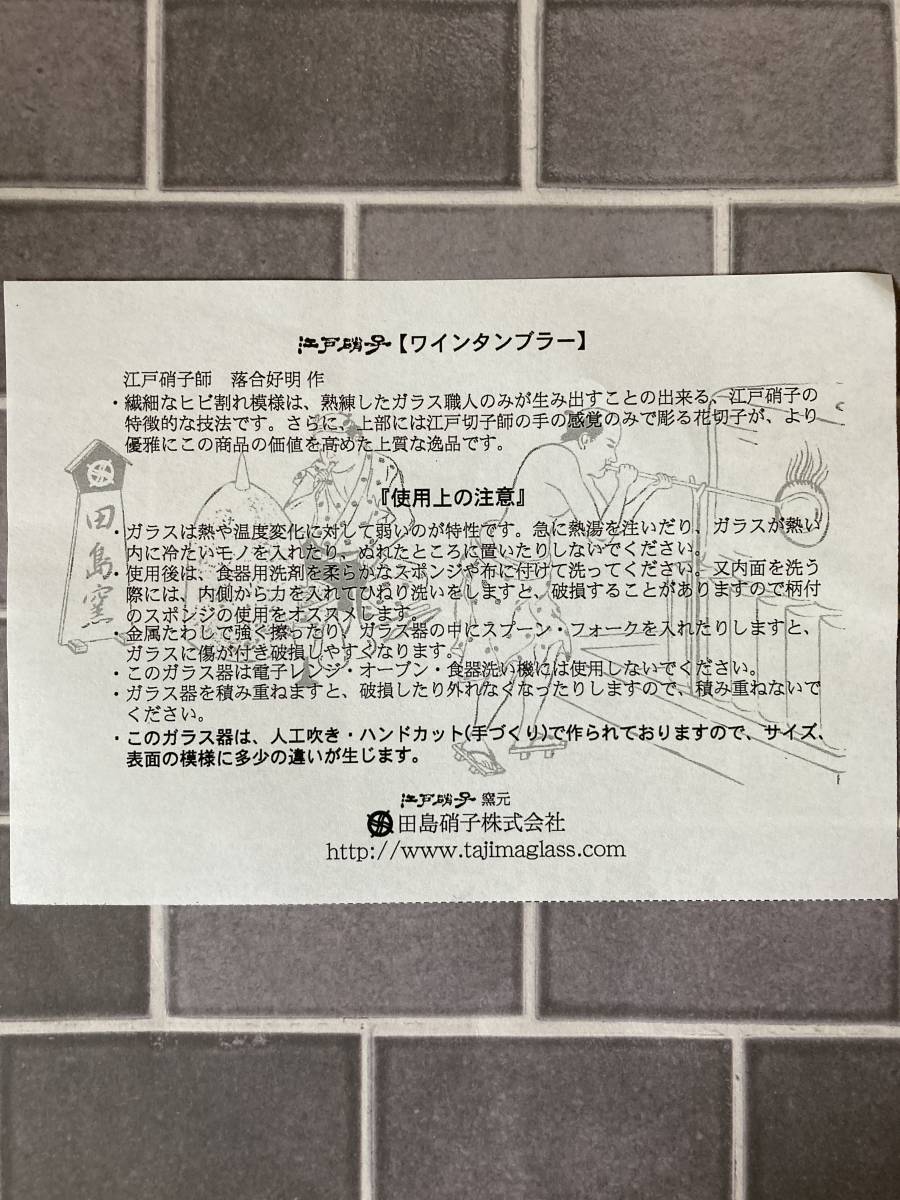 江戸硝子【ワインタンブラー】
江戸硝子師　落合好明 作
・繊細なヒビ割れ模様は、熟練したガラス職人のみが生み出すことの出来る、江戸硝子の
特徴的な技法です。さらに、上部には江戸切子師の手の感覚のみで彫る花切子が、より
優雅にこの商品の価値を高めた上質な逸品です。
『使用上の注意』
・ガラスは熱や温度変化に対して弱いのが特性です。急に熱湯を注いだり、ガラスが熱い
内に冷たいモノを入れたり、ぬれたところに置いたりしないでください。
・使用後は、食器用洗剤を柔らかなスポンジや布に付けて洗ってください。又内面を洗う
際には、内側から力を入れてひねり洗いをしますと、破損することがありますので柄付
のスポンジの使用をオススメします。
・金属たわしで強く擦ったり、ガラス器の中にスプーン・フォークを入れたりしますと、
ガラスに傷が付き破損しやすくなります。
・このガラス器は電子レンジ・オーブン・食器洗い機には使用しないでください。
・ガラス器を積み重ねますと、破損したり外れなくなったりしますので、積み重ねないで
ください。
・このガラス器は、人工吹き・ハンドカット(手づくり)で作られておりますので、サイズ、
表面の模様に多少の違いが生じます。
田島窯
江戸硝子 窯元
田島硝子株式会社
http://www.tajimaglass.com